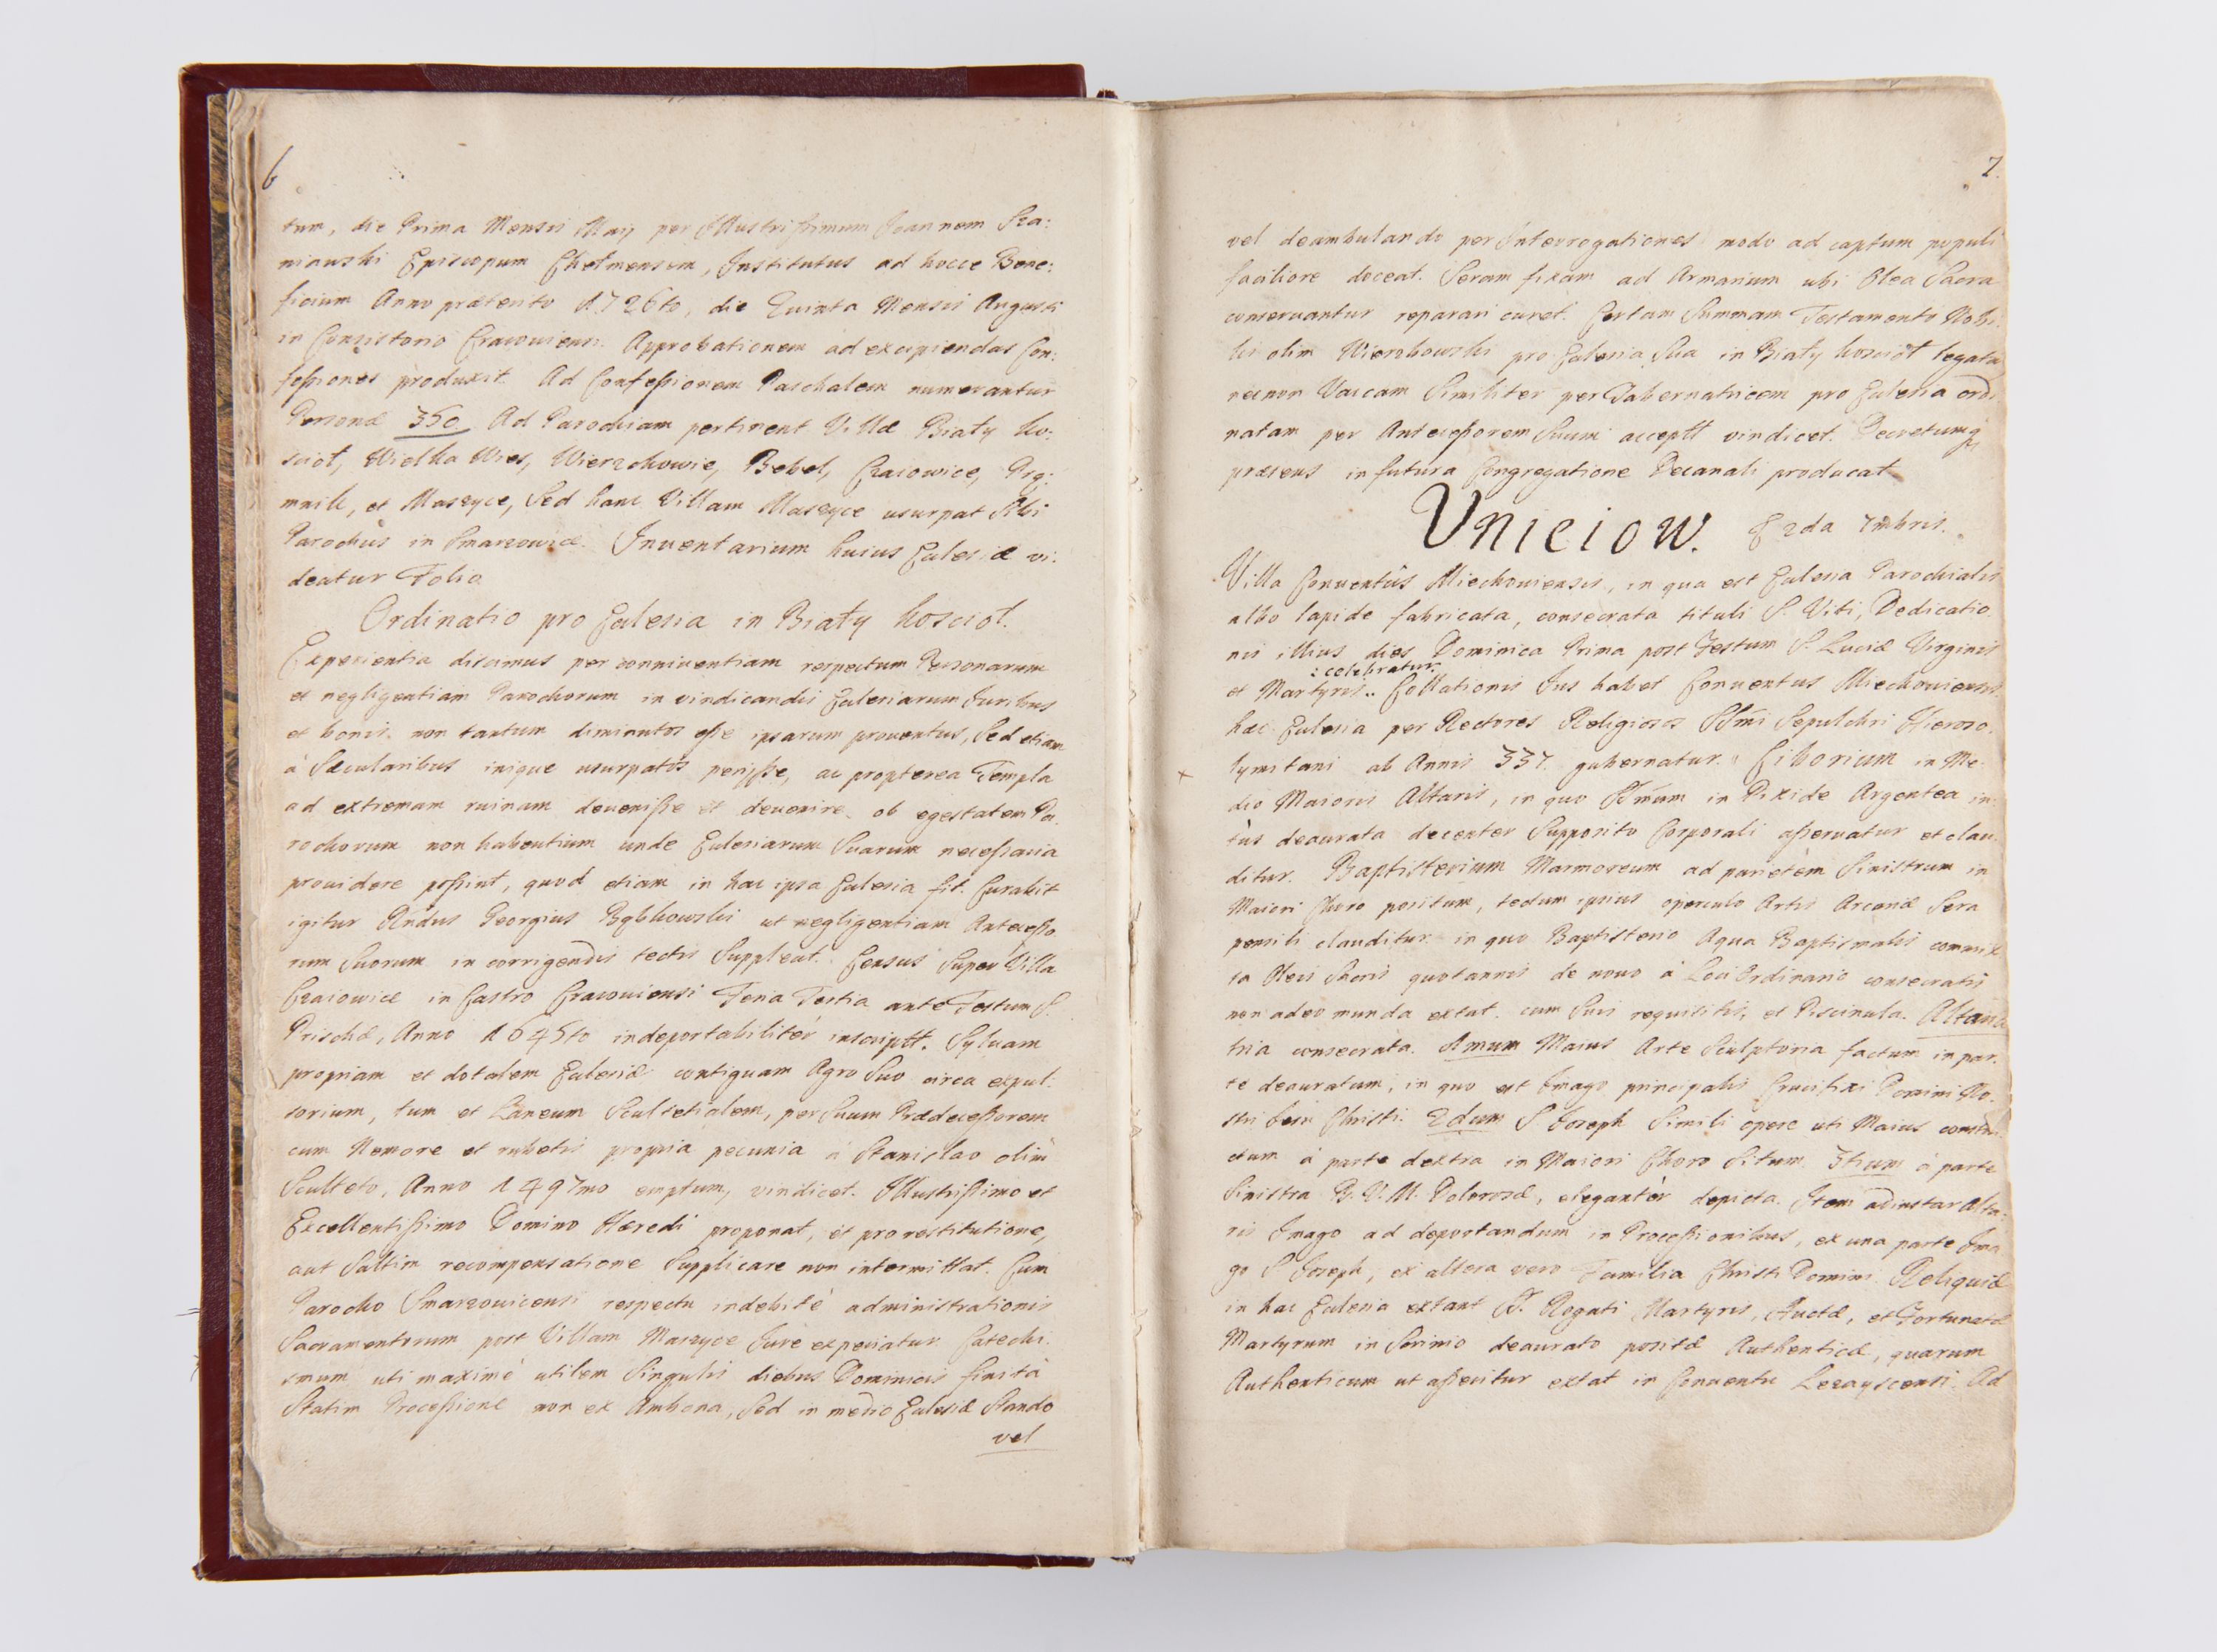 6
tum, die Prima Mensis Maij per Illustrissimum Joannem Sza:
niawski Episcopum Chełmensem, Institutus ad hocce Bene:
ficium Anno præterito 1726to, die Quinta Mensis Augusti
in Consistorio Cracoviensi. Approbationem ad excipiendas Con:
fessiones produxit. Ad Confessionem Paschalem numerantur
Personæ 350 Ad Parochiam pertinent Villæ Biały ko:
sciół, Wielka Wies, Wierzchowie, Bebel, Czaiowice, Prg:
mnik, et Maszyce, Sed hanc Villam Maszyce usurpat Sibi
Parochus in Smarzowice. Inventarium huius Eclesiæ vi:
deatur Folio
Ordinatio pro Eclesia in Biały kosciół.
Experientia discimus per conniventiam respectum Personarum
et negligentiam Parochorum in vindicandis Eclesiarum Juribus
et bonis, non tantum diminutos esse ipsarum proventus, Sed etiam
à Sæcularibus inique usurpatos perijsse, ac propterea Templa
ad extremam ruinam devenisse et devenire. ob egestatem Pa
rochorum non habentium unde Eclesiarum Suarum necessaria
providere possint, quod etiam in hac ipsa Eclesia fit. Curabit
igitur Rndus Georgius Rybkowski ut negligentiam Antecesso
rum Suorum in corrigendis tectis Suppleat. Census Super Villa
Czaiowice in Castro Cracoviensi Feria Tertia ante Festum S.
Priscæ, Anno 1645to indeportabilitèr inscriptt. Sylvam
propriam et dotalem Eclesiæ contiguam Agro Suo circa expul:
sorium, tum et Laneum Scultetialem, per Suum Prædecessorem
cum Nemore et rubetis propria pecunia à Stanislao olim
Sculteto, Anno 1497mo emptum, vindicet. Illustrissimo et
Excellentissimo Domino Hæredi proponat, et pro restitutione,
aut Saltim recompensatione Supplicare non intermittat. Cum
Parocho Smarzovicensi respectu indebitè administrationis
Sacramentorum post Villam Maszyce Jure experiatur. Catechi:
smum uti maximè utilem Singulis diebus Dominicis finita
Statim Processione non ex Ambona, Sed in medio Eclesiæ Stando
vel
7.
vel deambulando per Interrogationes modo ad captum populi
faciliore doceat. Seram fixam ad Armarium ubi Olea Sacra
conservantur reparari curet. Certam Summam Testamento Nobi
lis olim Wierzbowski pro Eclesia Sua in Biały kosciół legatam
necnon Vaccam Similiter per Tabernatricem pro Eclesia ordi
natam per Antecessorem Suum acceptt vindicet. Decretumq
præsens in futura Congregatione Decanali producat
Vnieiow. E 2da 7mbris.
Villa Conventûs Miechoviensis, in qua est Eclesia Parochialis
albo lapide fabricata, consecrata tituli S. Viti, Dedicatio
nis illius dies Dominica Prima post Festum S. Luciæ Virginis
: celebratur.
et Martyris.. Collationis Jus habet Conventus Miechoviensis
hæc Eclesia per Rectores Religiosos SSmi Sepulchri Hieroso.
lymitani ab Annis 337. gubernatur. Ciborium in Me
dio Maioris Altaris, in quo SSmum in Pixide Argentea in
tùs deaurata decenter Supposito Corporali asservatur et clau
ditur. Baptisterium Marmoreum ad parietèm Sinistrum in
Maiori Choro positum, tectum ipsius operculo Artis Arcariæ Sera
pensili clauditur in quo Baptisterio Aqua Baptismalis commix
ta Oleis Sacris quotannis de novo à Loci Ordinario consecratis
non adeo munda extat. cum Suis requisitis, et Piscinula. Altaria
tria consecrata. Amum Maius Arte Sculptoria factum in par.
te deauratum, in quo est Imago principalis Crucifixi Domini No.
stri Iesu Christi. 2dum S Joseph Simili opere uti Maius constru
ctum à parte dextra in Maiori Choro Situm. 3tium à parte
Sinistra B. V. M. Dolorosæ, elegantèr depicta. Item adinstar Alta
ris Imago ad deportandum in Processionibus, ex una parte Ima
go S Joseph, ex altera vero Familia Christi Domini. Reliquiæ
in hac Eclesia extant SS. Rogati Martyris, Auctæ, et Fortunatæ
Martyrum in Scrinio deaurato positæ Authenticæ, quarum
Authenticum ut asseritur extat in Conventu Lezayscensi. Ad